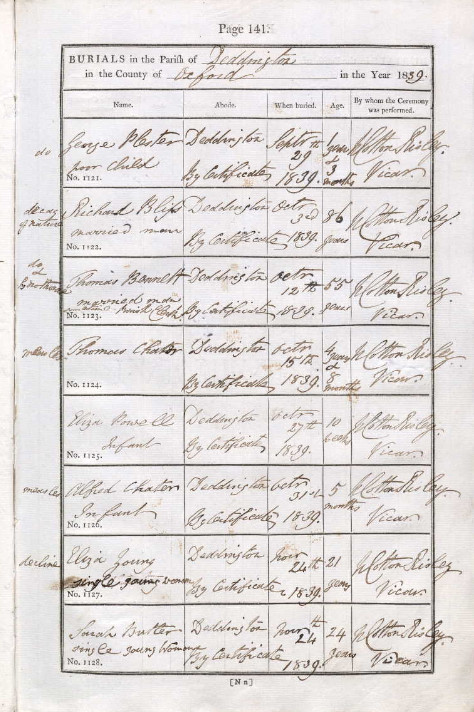 Page 141.
BURIALS in the Parish of Deddington
in the County of Oxford in the Year 1839.
Name. Abode. When buried. Age. By whom the Ceremony was performed.
do
George Plester Deddington Septr 29th 1 year & 3 months W Cotton Risley
poor Child By Certificate 1839. Vicar
No. 1121.
decay of nature
Richard Bliss Deddington Octr 3rd 86 years W Cotton Risley
married man By Certificate 1839. Vicar
No. 1122.
do &
Thomas Bennett Deddington Octr 12th 55 years W Cotton Risley
married man Parish Clerk By Certificate 1839. Vicar
No. 1123.
measles
Thomas Chater Deddington Octr 15th 4 years & 8 months W Cotton Risley
No. 1124. By Certificate 1839. Vicar
Eliza Powell Deddington Octr 27th 10 weeks W Cotton Risley
Infant By Certificate 1839. Vicar
No. 1125.
measles
Alfred Chater Deddington Octr 31st 5 months W Cotton Risley
Infant By Certificate 1839. Vicar
No. 1126.
decline
Eliza Young Deddington Novr 24th 21 years W Cotton Risley
single young woman By Certificate 1839. Vicar
No. 1127.
Sarah Deddington Novr 24th 24 years W Cotton Risley
single young woman By Certificate 1839. Vicar
No. 1128.
[N n]